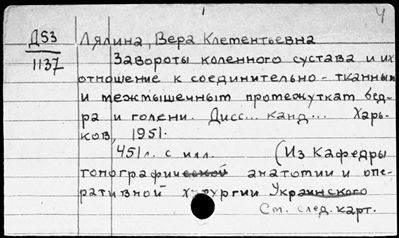 Ч
Д53 Лялина, Вера Клементьевна
1137 Завороты коленного сустава и их
отношение к соединительно-тканным
и межмышечным промежуткам бед-
ра и голени. Дисс... канд... Харь-
ков, 1951.
451 л. с илл. (Из Кафедры
топографической анатомии и опе-
ративной хирургии Украинского
См. след. карт.